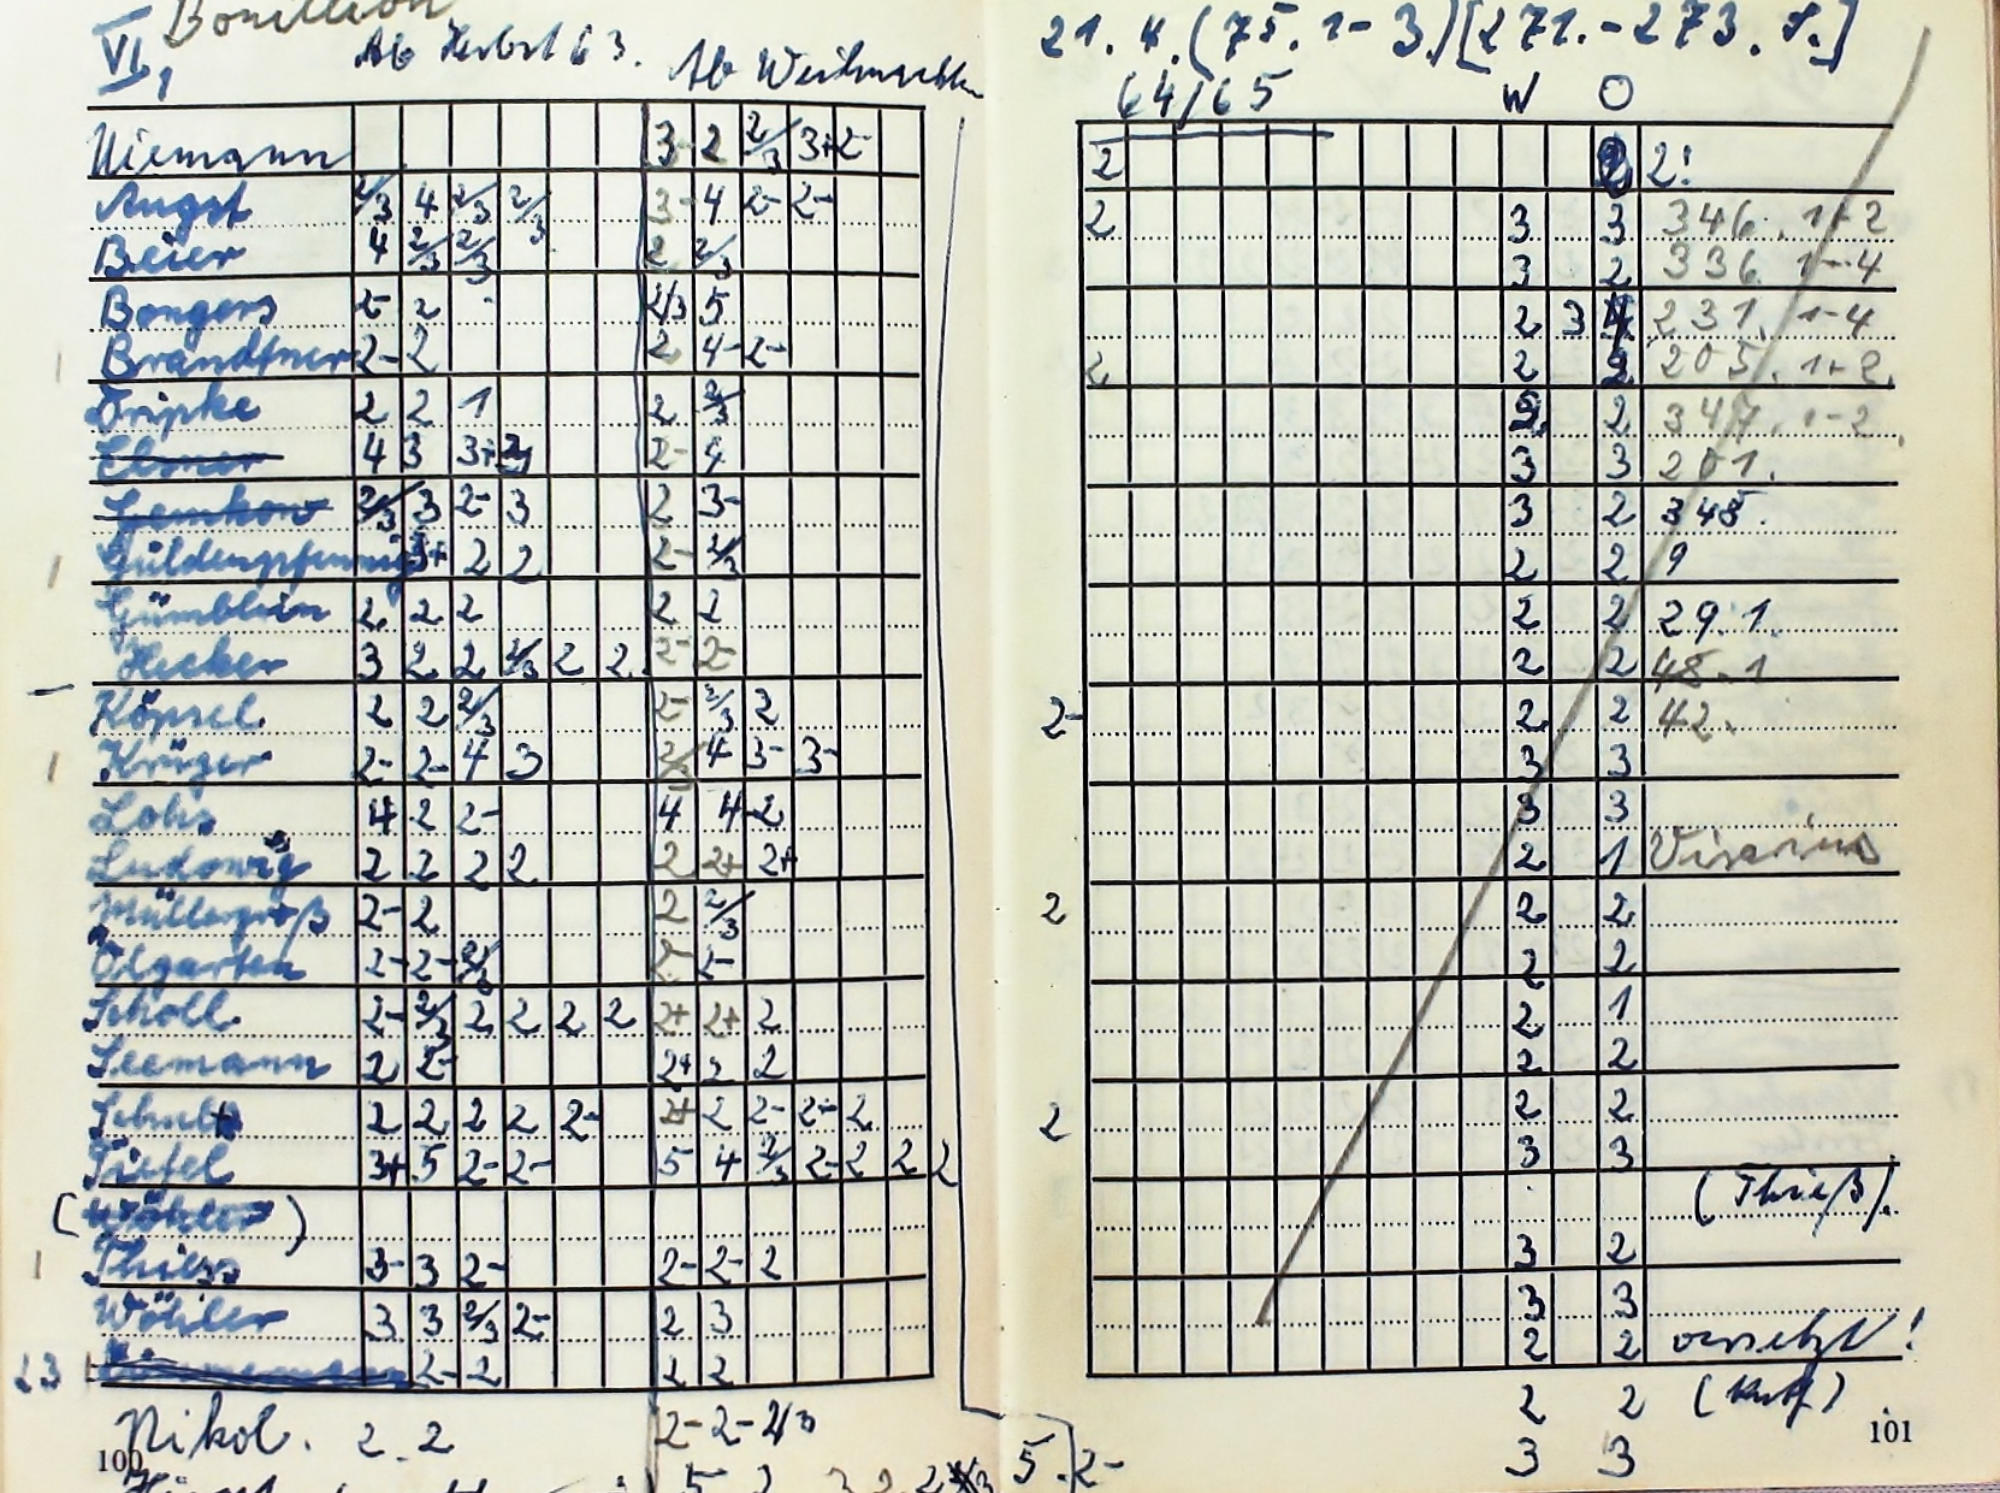 Bouillon
VI, 1 Ab Herbst 63. Ab Weihnachten
Niemann 3- 2 2/3 3+ 2-
Angst 2/3 4 2/3 2/3 3- 4 2- 2-
Beier 4 2/3 2/3 2 2/3
Bongers 2- 2 2/3 5
Brandtner 2- 2 2 4- 2-
Dripke 2 2 1 2 2/3
Elsner 4 3 3+ 2- 4
Gemkow 2/3 3 2- 3 2 3-
Güldenpfennig 3+ 2 2 2- 2/3
Gümblein 2 2 2 2 2
Hecker 3 2 2 2/3 2 2 2- 2-
Köpsel 2 2 2/3 2- 2/3 2
Krüger 2- 2- 4 3 2/3 4 3- 3-
Lohs 4 2 2- 4 4- 2
Ludowig 2 2 2 2 2 2+ 2+
Müllergroß 2- 2 2 2/3
Ölgarten 2- 2- 2/3 2- 2-
Scholl 2- 2/3 2 2 2 2 2+ 2+ 2
Seemann 2 2- 2+ 2 2
Schulz 2 2 2 2 2- 2+ 2 2- 2- 2
Tiefel 3+ 5 2- 2- 5 4 2/3 2- 2 2 2
(Wöhler)
Thiess 3- 3 2- 2- 2- 2
Wöhler 3 3 2/3 2- 2 3
23 2- 2 2 2
Nikol. 2. 2 2- 2- 2/3
100
5 2 3 2 2 5. 2-
21. 4. (75. 1-3.) [271.-273. S.]
64/65 W O
2 2 2!
2 3 3 346. 1+2
3 2 336. 1-4
2 3 4 231. 1-4
2 2 2 205. 1+2.
2 2 347. 1-2.
3 3 201.
3 2 348.
2 2 9
2 2 29. 1.
2 2 48. 1
2- 2 2 42.
3 3
3 3
2 1
2 2 2
2 2
2 1
2 2
2 2 2
3 3
(Thieß).
3 2
3 3
2 2 versetzt!
2 2
3 3
101